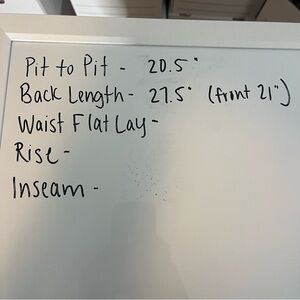 Pit to Pit - 20.5"
Back Length - 27.5" (front 21")
Waist Flat Lay -
Rise -
Inseam -